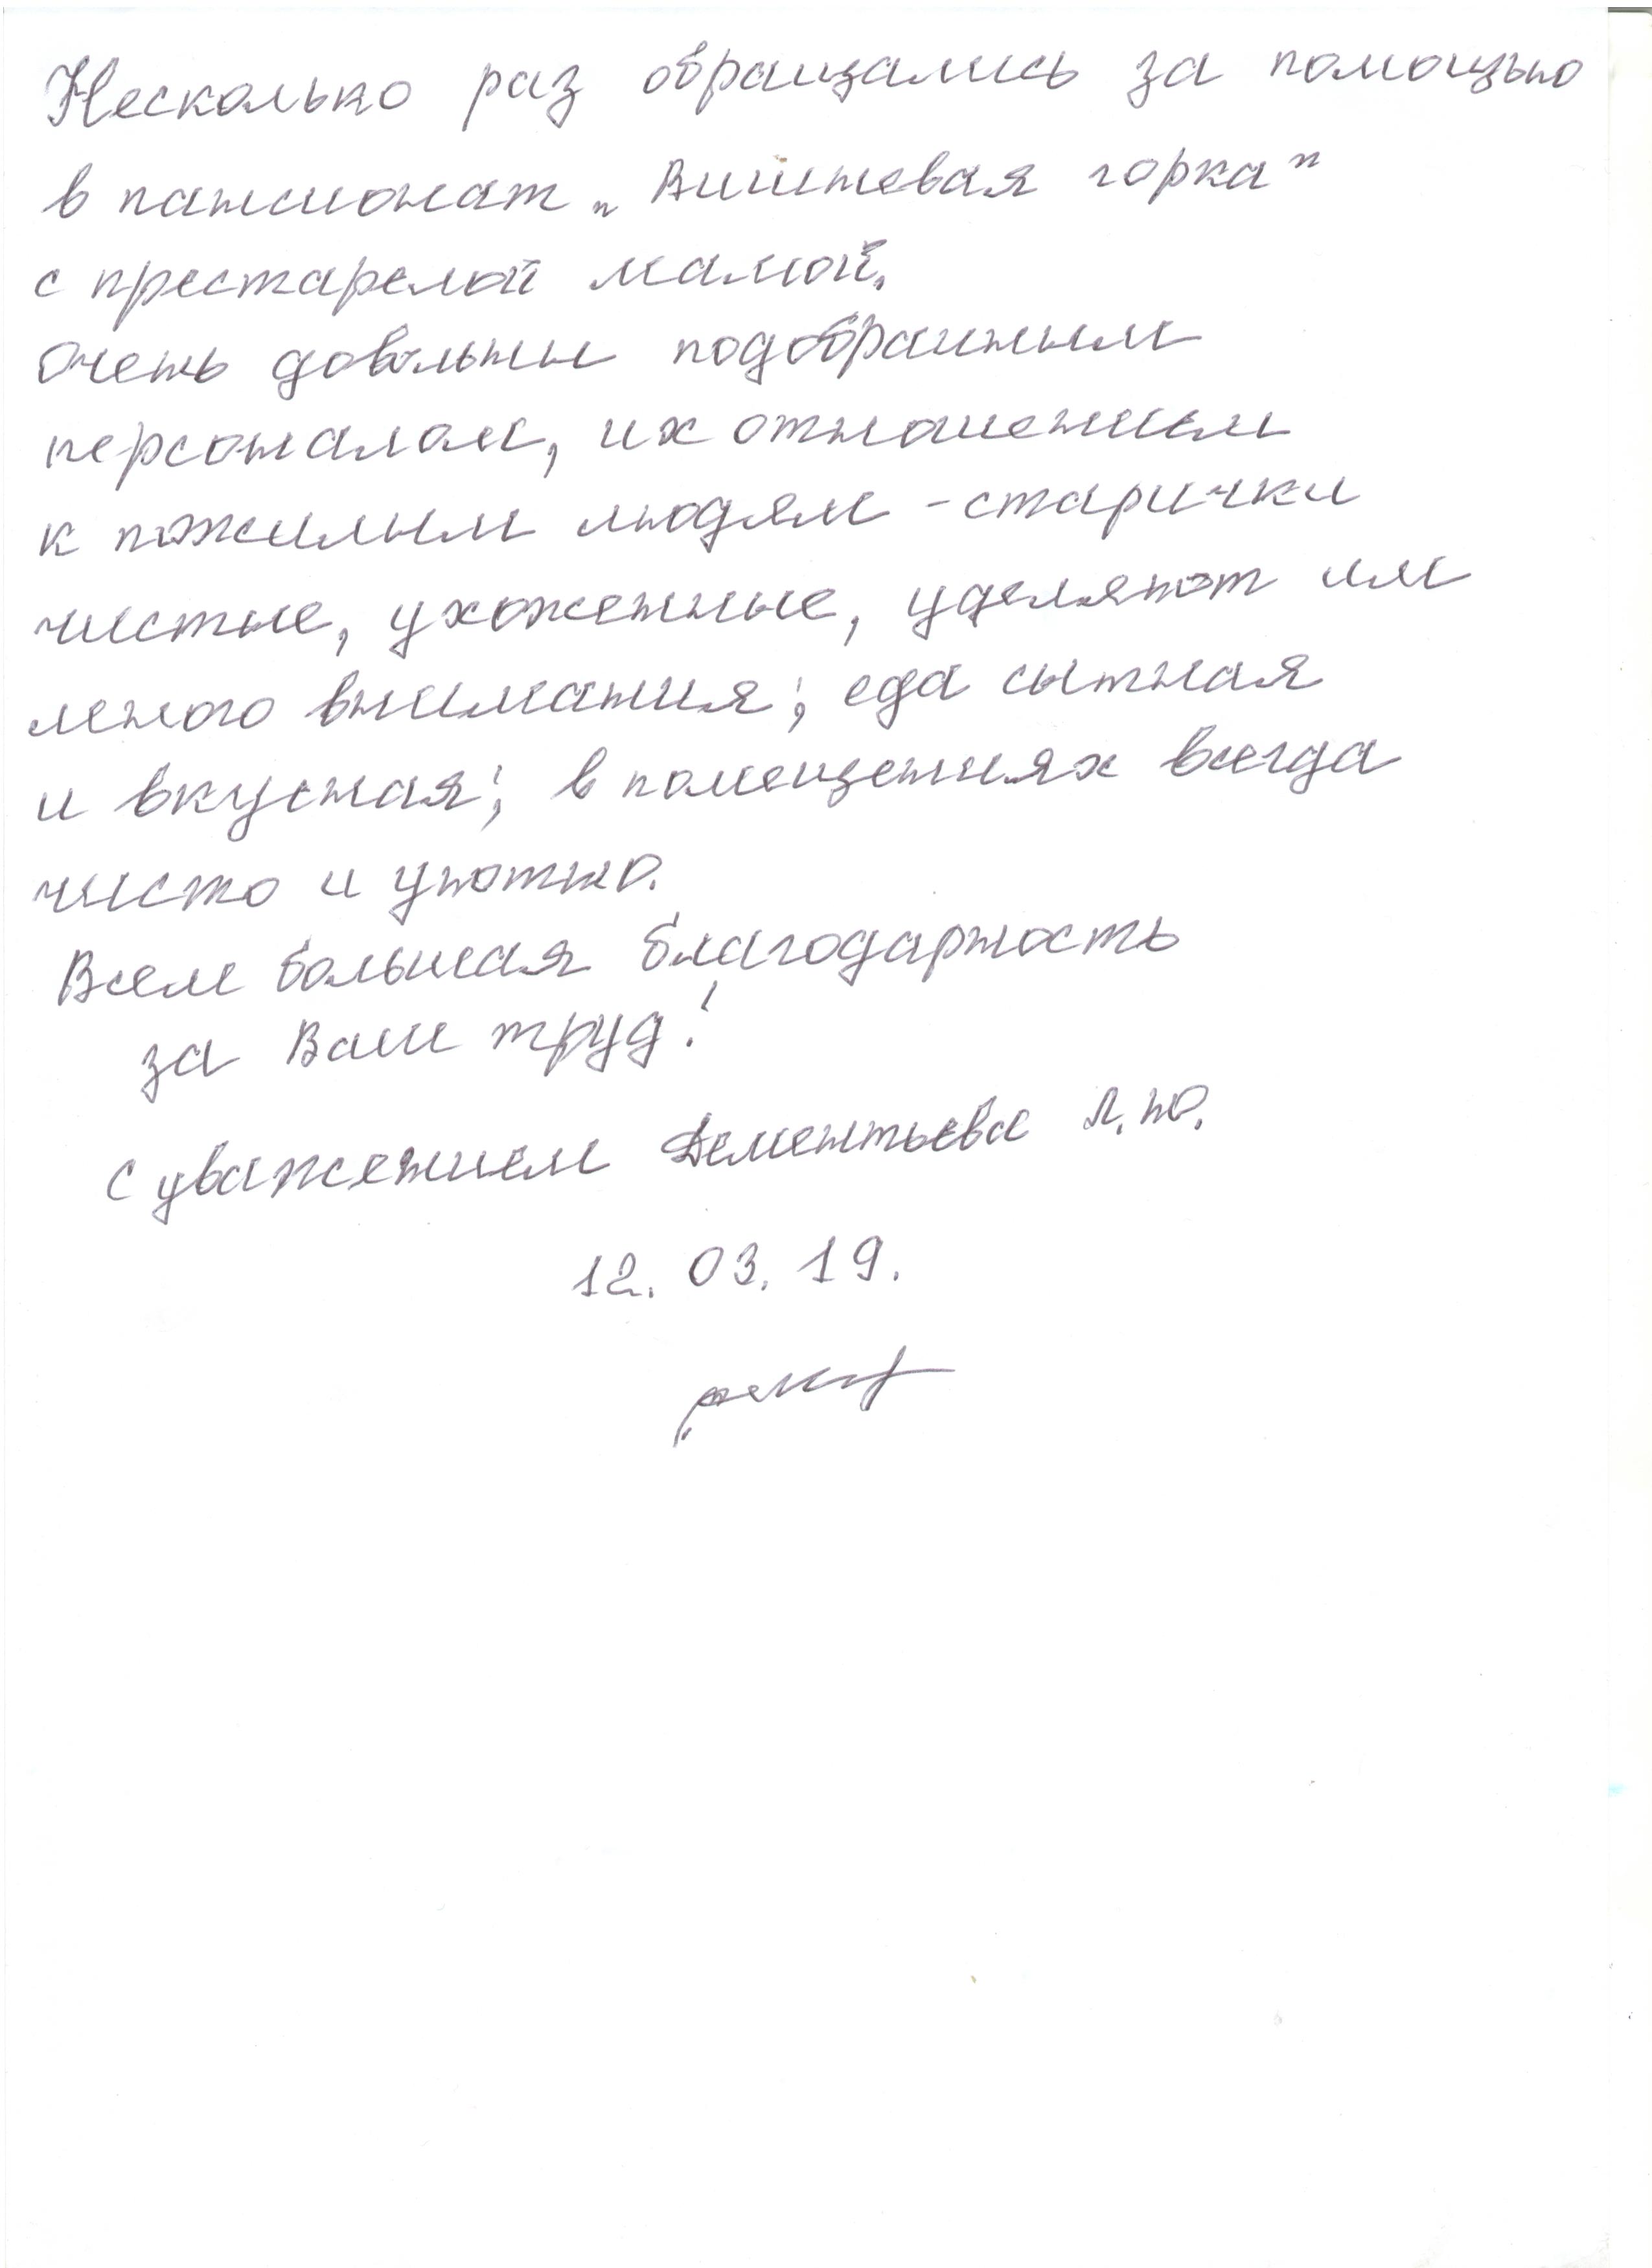 Несколько раз обращались за помощью
в пансионат „Вишневая горка"
с престарелой мамой.
Очень довольны подобранным
персоналом, их отношением
к пожилым людям - старички
чистые, ухоженные, уделяют им
много внимания; еда сытная
и вкусная; в помещениях всегда
чисто и уютно.
Всем большая благодарность
за Ваш труд!
С уважением Дементьева Л.Ю.
12.03.19.